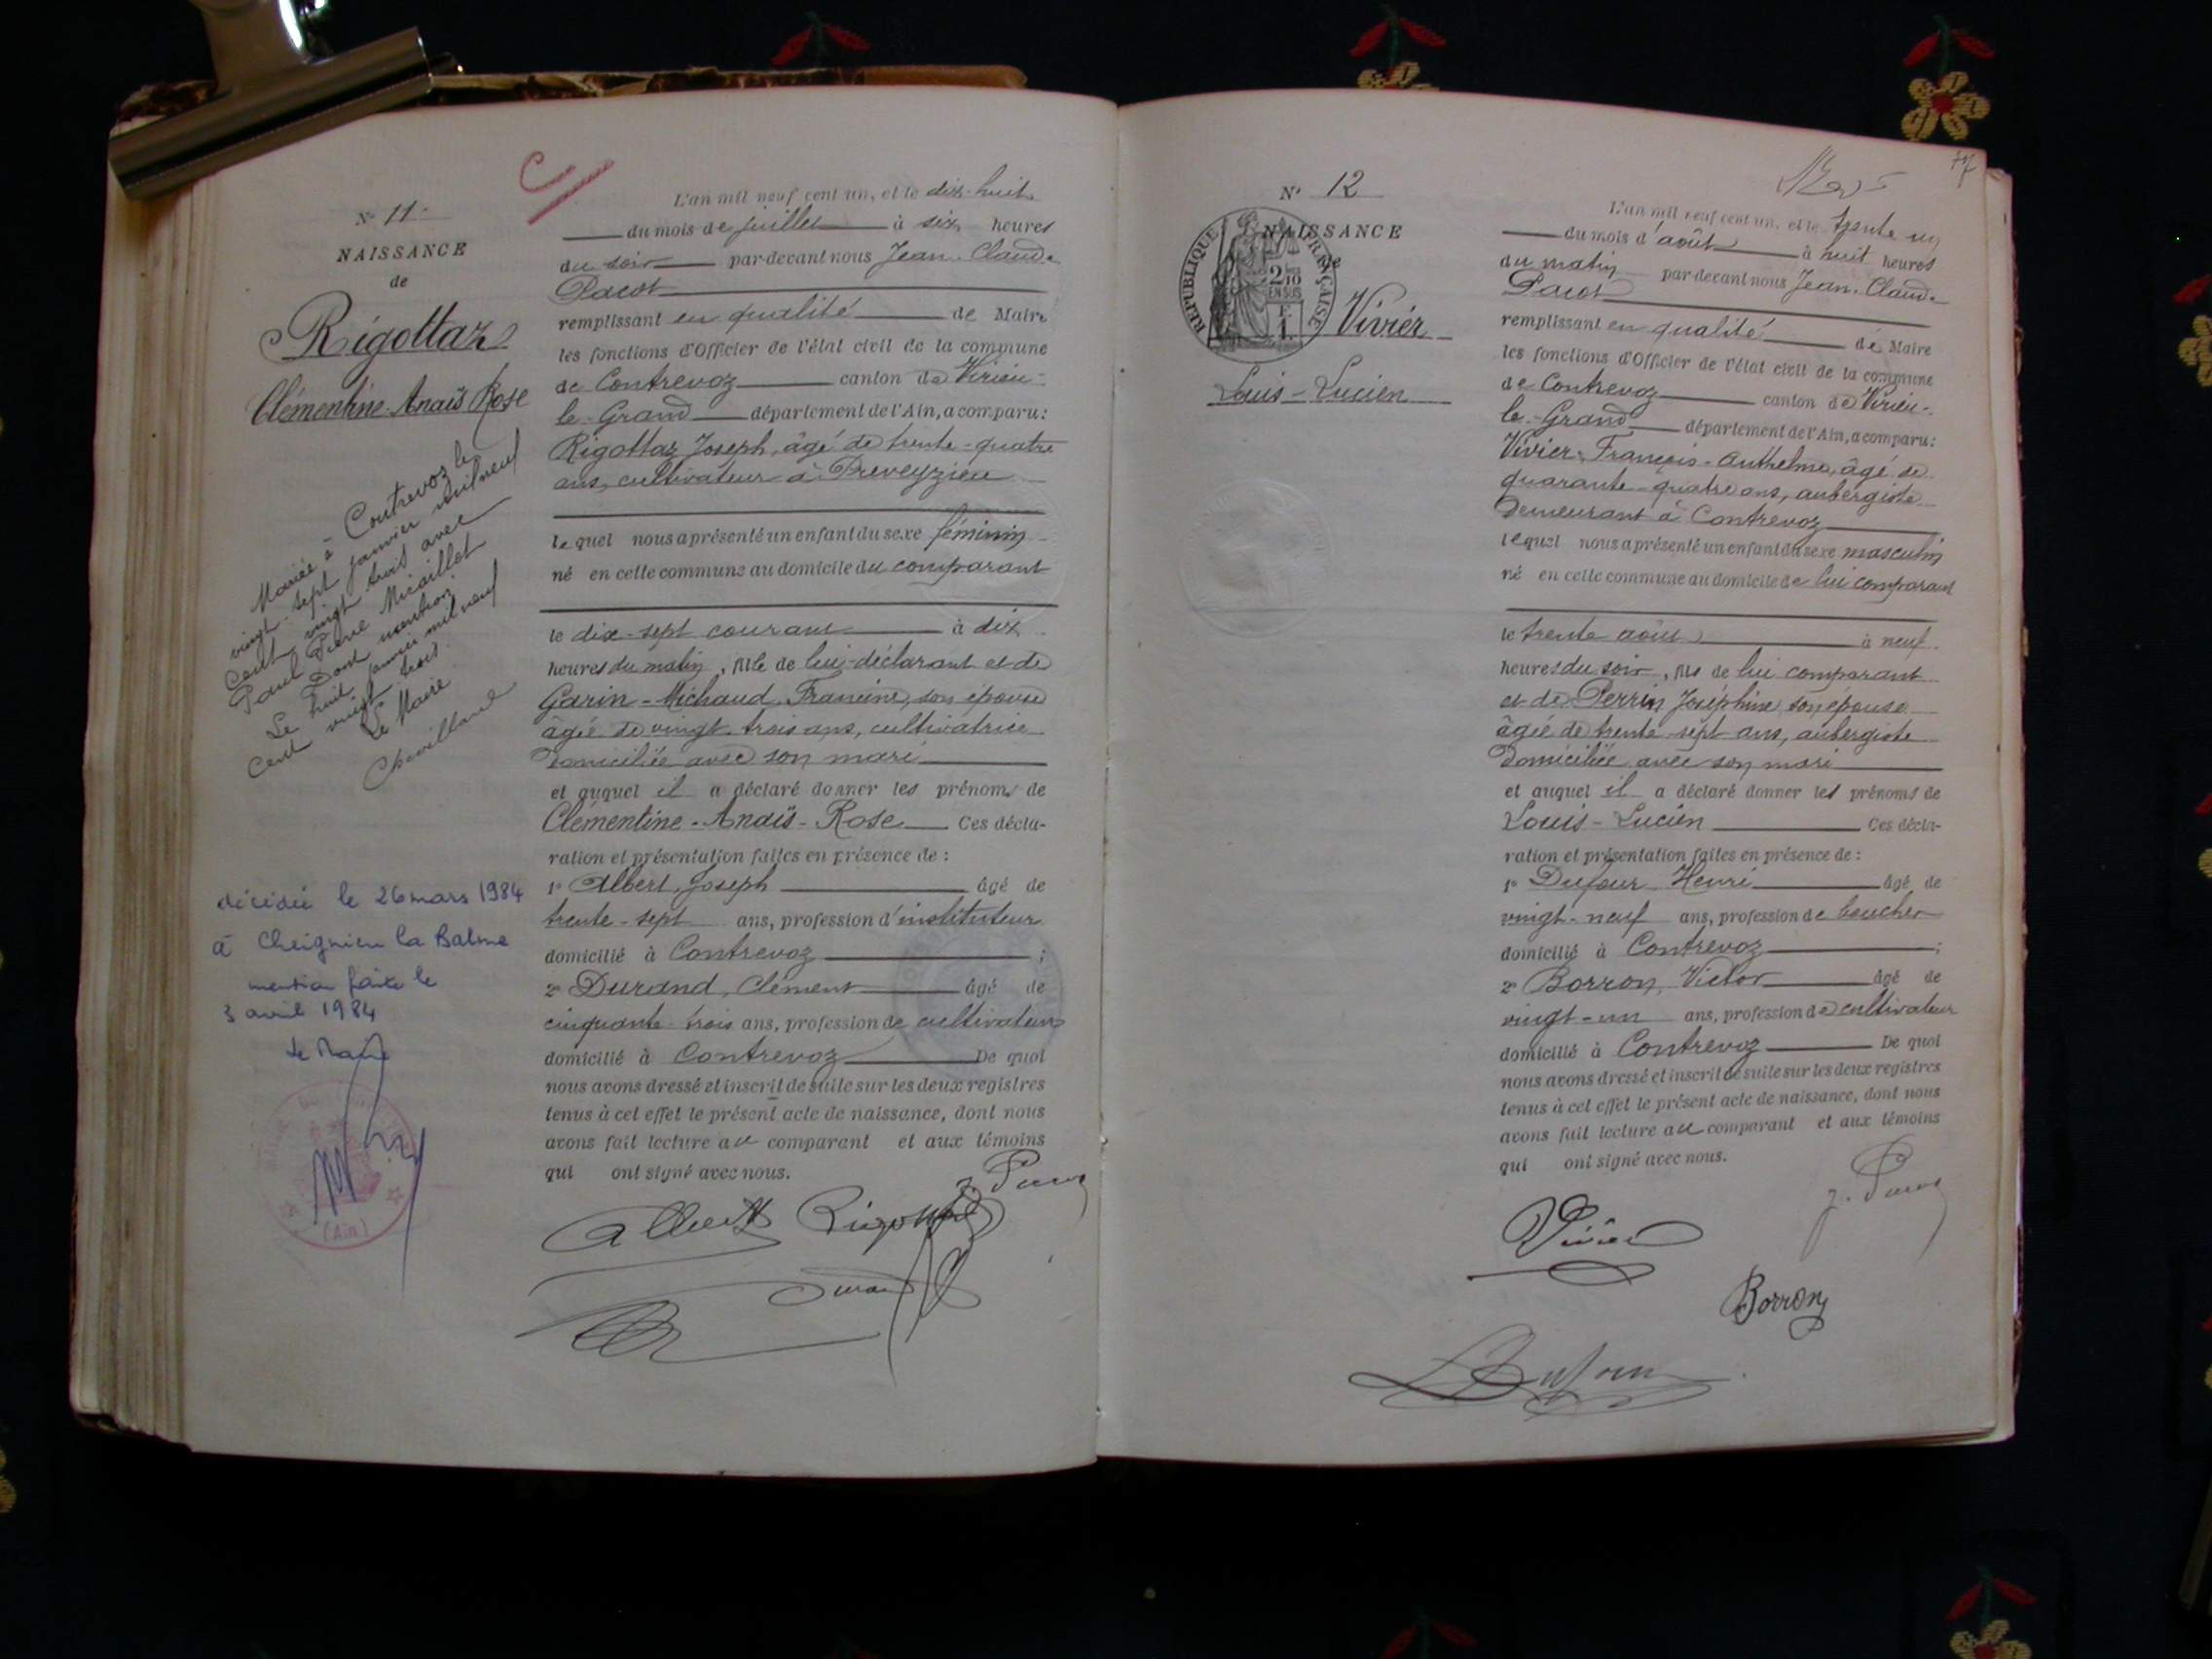 N° 11
NAISSANCE
de
Rigottaz
Clémentine Anaïs Rose
Mariée à Contrevoz le
vingt-sept janvier mil neuf
cent vingt trois avec
Paul Pierre Micaillet
Dont mention
Le huit janvier mil neuf
cent vingt trois
Le Maire
Chevilland
décédée le 26 mars 1984
à Cheignieu la Balme
mention faite le
3 avril 1984
Le Maire
(Ain)
L'an mil neuf cent un, et le dix-huit
du mois de juillet à six heures
du soir par-devant nous Jean-Claude
Pacot
remplissant en qualité de Maire
les fonctions d'Officier de l'état civil de la commune
de Contrevoz canton de Virieu-
le-Grand département de l'Ain, a comparu:
Rigottaz Joseph, âgé de trente-quatre
ans, cultivateur à Preveyzieu
lequel nous a présenté un enfant du sexe féminin
né en cette commune au domicile du comparant
le dix-sept courant à dix
heures du matin, fille de lui déclarant et de
Garin-Michaud Francine, son épouse
âgée de vingt-trois ans, cultivatrice
domiciliée avec son mari
et auquel il a déclaré donner les prénoms de
Clémentine-Anaïs-Rose Ces décla-
ration et présentation faites en présence de :
1° Albert, Joseph âgé de
trente-sept ans, profession d'instituteur
domicilié à Contrevoz ;
2° Durand, Clément âgé de
cinquante-trois ans, profession de cultivateur
domicilié à Contrevoz De quoi
nous avons dressé et inscrit de suite sur les deux registres
tenus à cet effet le présent acte de naissance, dont nous
avons fait lecture au comparant et aux témoins
qui ont signé avec nous.
J. Pacot
Albert Rigottaz
Durand
N° 12
NAISSANCE
de
REPUBLIQUE FRANÇAISE
2/10
EN SUS
F.
1
Vivier
Louis-Lucien
17
L'an mil neuf cent un, et le trente un
du mois d'août à huit heures
du matin par-devant nous Jean-Claude
Pacot
remplissant en qualité de Maire
les fonctions d'Officier de l'état civil de la commune
de Contrevoz canton de Virieu-
le-Grand département de l'Ain, a comparu:
Vivier, François-Anthelme, âgé de
quarante-quatre ans, aubergiste
demeurant à Contrevoz
lequel nous a présenté un enfant du sexe masculin
né en cette commune au domicile de lui comparant
le trente août à neuf
heures du soir, fils de lui comparant
et de Perrin Joséphine, son épouse
âgée de trente-sept ans, aubergiste
domiciliée avec son mari
et auquel il a déclaré donner les prénoms de
Louis-Lucien Ces décla-
ration et présentation faites en présence de :
1° Dufour Henri âgé de
vingt-neuf ans, profession de boucher
domicilié à Contrevoz ;
2° Borron, Victor âgé de
vingt-un ans, profession de cultivateur
domicilié à Contrevoz De quoi
nous avons dressé et inscrit de suite sur les deux registres
tenus à cet effet le présent acte de naissance, dont nous
avons fait lecture au comparant et aux témoins
qui ont signé avec nous.
J. Pacot
Vivier
Borron
Dufour